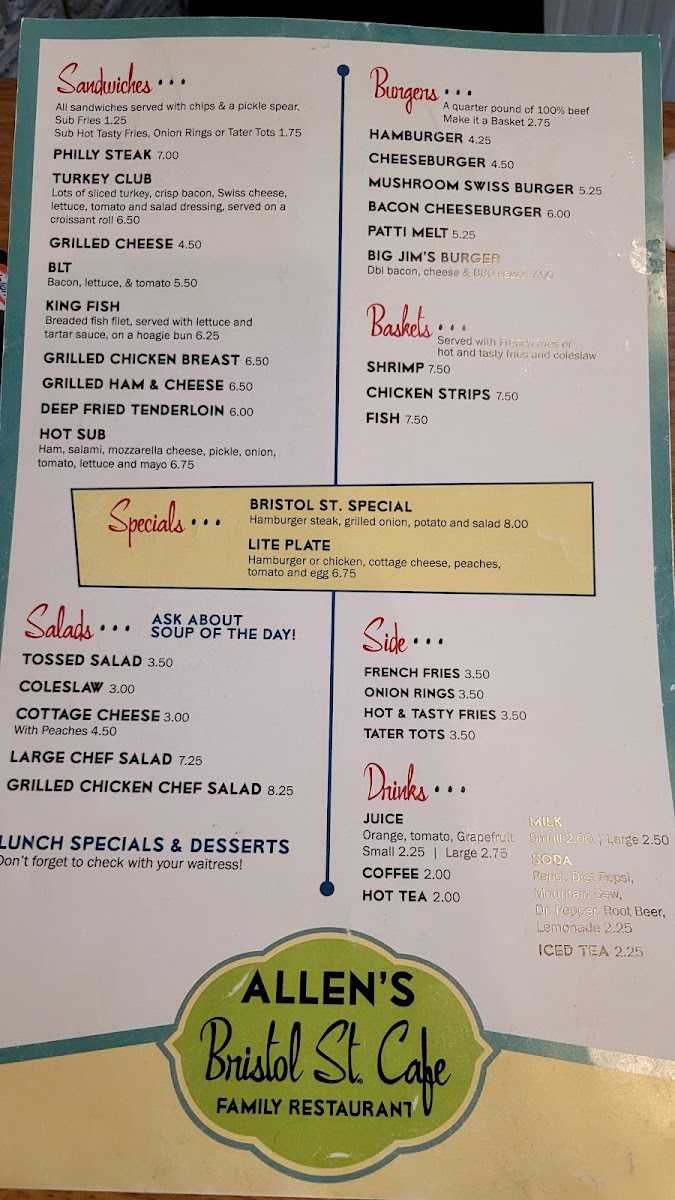 Sandwiches •••
All sandwiches served with chips & a pickle spear.
Sub Fries 1.25
Sub Hot Tasty Fries, Onion Rings or Tater Tots 1.75
PHILLY STEAK 7.00
TURKEY CLUB
Lots of sliced turkey, crisp bacon, Swiss cheese,
lettuce, tomato and salad dressing, served on a
croissant roll 6.50
GRILLED CHEESE 4.50
BLT
Bacon, lettuce, & tomato 5.50
KING FISH
Breaded fish filet, served with lettuce and
tartar sauce, on a hoagie bun 6.25
GRILLED CHICKEN BREAST 6.50
GRILLED HAM & CHEESE 6.50
DEEP FRIED TENDERLOIN 6.00
HOT SUB
Ham, salami, mozzarella cheese, pickle, onion,
tomato, lettuce and mayo 6.75
Burgers •••
A quarter pound of 100% beef
Make it a Basket 2.75
HAMBURGER 4.25
CHEESEBURGER 4.50
MUSHROOM SWISS BURGER 5.25
BACON CHEESEBURGER 6.00
PATTI MELT 5.25
BIG JIM'S BURGER
Dbl bacon, cheese & BBQ sauce 7.00
Baskets •••
Served with French fries or
hot and tasty fries and coleslaw
SHRIMP 7.50
CHICKEN STRIPS 7.50
FISH 7.50
Specials •••
BRISTOL ST. SPECIAL
Hamburger steak, grilled onion, potato and salad 8.00
LITE PLATE
Hamburger or chicken, cottage cheese, peaches,
tomato and egg 6.75
Salads •••
ASK ABOUT
SOUP OF THE DAY!
TOSSED SALAD 3.50
COLESLAW 3.00
COTTAGE CHEESE 3.00
With Peaches 4.50
LARGE CHEF SALAD 7.25
GRILLED CHICKEN CHEF SALAD 8.25
LUNCH SPECIALS & DESSERTS
Don't forget to check with your waitress!
Side •••
FRENCH FRIES 3.50
ONION RINGS 3.50
HOT & TASTY FRIES 3.50
TATER TOTS 3.50
Drinks •••
JUICE
Orange, tomato, Grapefruit
Small 2.25 | Large 2.75
COFFEE 2.00
HOT TEA 2.00
MILK
Small 2.00 | Large 2.50
SODA
Pepsi, Diet Pepsi,
Mountain Dew,
Dr. Pepper, Root Beer,
Lemonade 2.25
ICED TEA 2.25
ALLEN'S
Bristol St. Cafe
FAMILY RESTAURANT